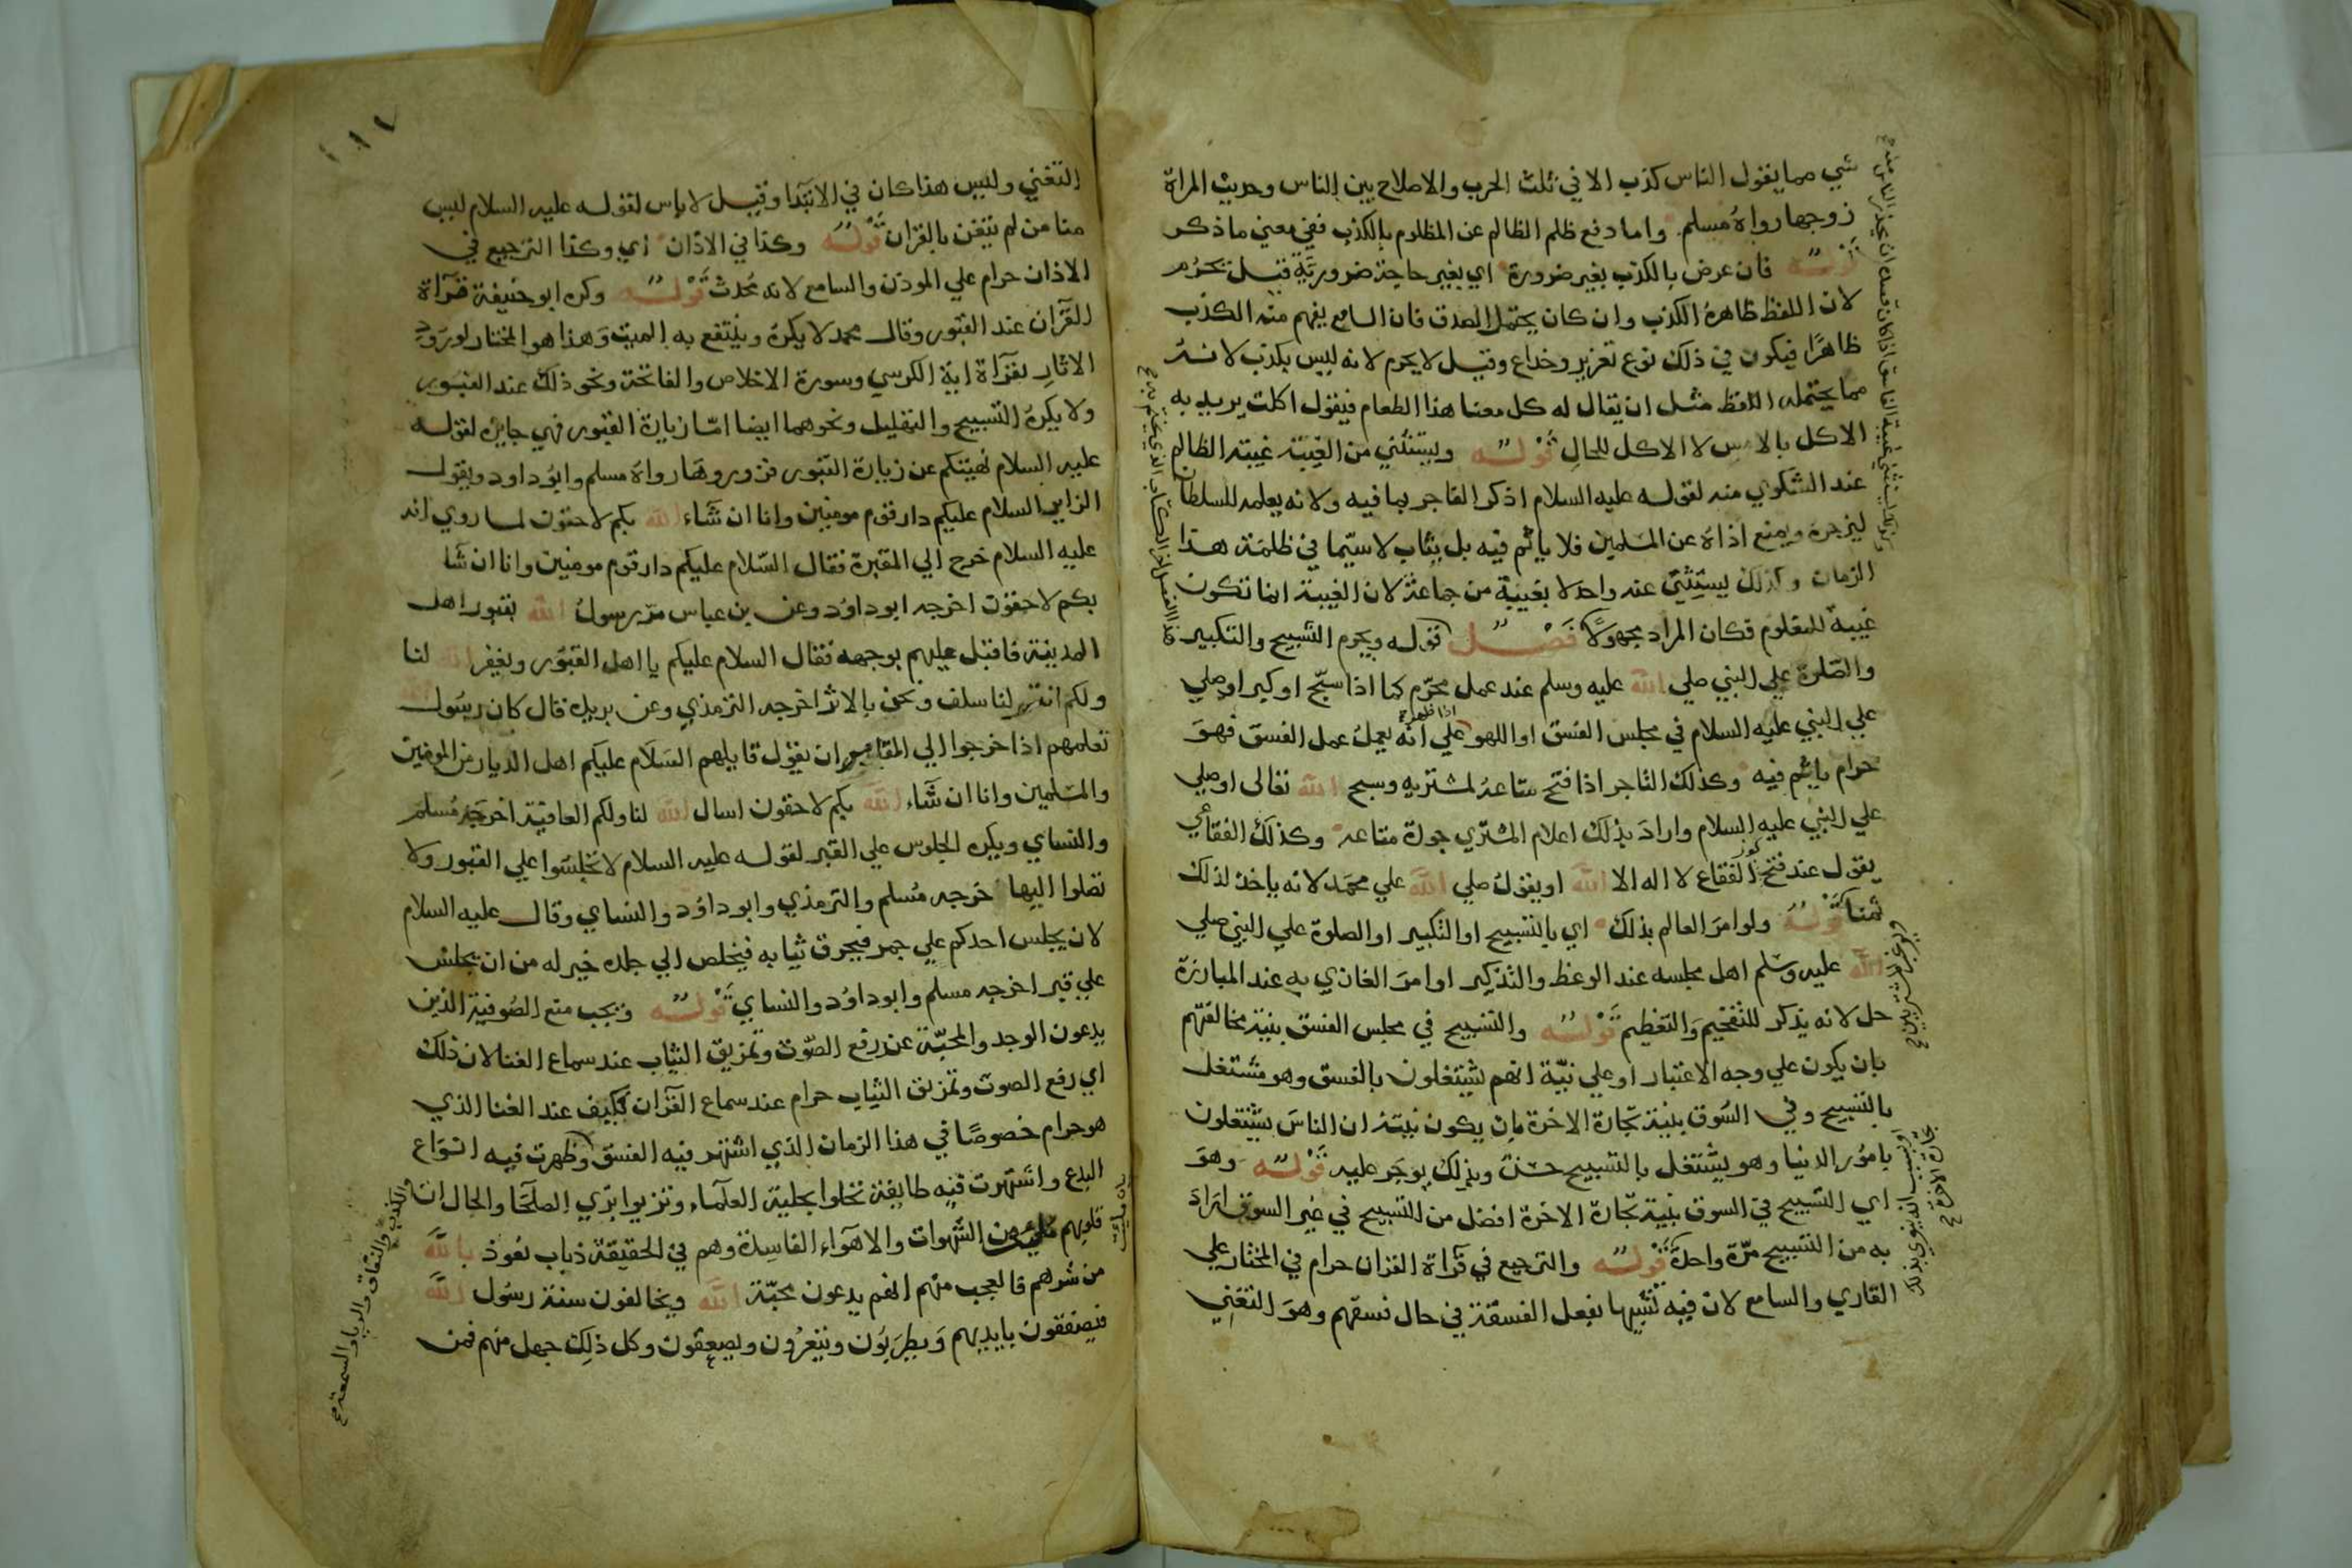 شي مما يقول الناس كذب الا في ثلث الحرب والاصلاح بين الناس وحديث المراة
زوجها رواه مسلم واما دفع ظلم الظالم عن المظلوم بالكذب ففي معني ما ذكر
قوله فان عرض بالكذب بغير ضرورة اي بغير حاجة ضرورية قيل تحرم
لان اللفظ ظاهره الكذب وان كان يحتمل الصدق فان السامع يفهم منه الكذب
ظاهرا فيكون في ذلك نوع تغرير وخداع وقيل لا يحرم لانه ليس بكذب لانه
مما يحتمله اللفظ مثل ان يقال له كل معنا هذا الطعام فيقول اكلت يريد به
الاكل بالامس لا الاكل للحال قوله ويستثني من الغيبة غيبة الظالم
عند الشكوي منه لقوله عليه السلام اذكر الفاجر بما فيه ولانه يعلمه للسلطان
ليزجره ويمنع اذاه عن المسلمين فلا ياثم فيه بل يثاب لاسيما في ظلمة هذا
الزمان وكذلك يستثني عنه واحد لا بعينه من جماعة لان الغيبة انما تكون
غيبة للمعلوم فكان المراد مجهولا فصل قوله ويحرم التسبيح والتكبير
والصلوة علي النبي صلي الله عليه وسلم عند عمل محرم كما اذا سبح او كبر او صلي
علي النبي عليه السلام في مجلس الفسق او اللهو علي انه يعمل عمل الفسق فهو
حرام ياثم فيه وكذلك التاجر اذا فتح متاعه لمشتريه وسبح الله تعالى او صلي
علي النبي عليه السلام واراد بذلك اعلام المشتري جودة متاعه وكذلك الفقاعي
يقول عند فتح كوز الفقاع لا اله الا الله او يقول صلي الله علي محمد لانه ياخذ لذلك
ثمنا قوله ولو امر العالم بذلك اي بالتسبيح او التكبير او الصلوة علي النبي صلي
الله عليه وسلم اهل مجلسه عند الوعظ والتذكير او امر الغازي به عند المبارزة
حل لانه يذكر للتفخيم والتعظيم قوله والتسبيح في مجلس الفسق بنية مخالفتهم
بان يكون علي وجه الاعتبار او علي نية انهم يشتغلون بالفسق وهو مشتغل
بالتسبيح وفي السوق بنية تجارة الاخرة بان يكون نيته ان الناس يشتغلون
بامور الدنيا وهو يشتغل بالتسبيح حسن وبذلك يوجر عليه قوله وهو
اي التسبيح في السوق بنية تجارة الاخرة افضل من التسبيح في غير السوق اراد
به من التسبيح مرة واحدة قوله والترجيع في قراة القران حرام في المختار علي
القاري والسامع لان فيه تشبيها بفعل الفسقة في حال فسقهم وهو التغني
التغني وليس هذا كان في الابتدا وقيل لا باس لقوله عليه السلام ليس
منا من لم يتغن بالقران قوله وكذا في الاذان اي وكذا الترجيع في
الاذان حرام علي الموذن والسامع لانه محدث قوله وكره ابو حنيفة قراة
القران عند القبور وقال محمد لا يكره وينتفع به الميت وهذا هو المختار لورود
الاثار بقراة اية الكرسي وسورة الاخلاص والفاتحة ونحو ذلك عند القبور
ولا يكره التسبيح والتهليل ونحوهما ايضا اما زيارة القبور فهي جايزه لقوله
عليه السلام نهيتكم عن زيارة القبور فزوروها رواه مسلم وابو داود ويقول
الزاير السلام عليكم دار قوم مومنين وانا ان شاء الله بكم لاحقون لما روي انه
عليه السلام خرج الي المقبرة فقال السلام عليكم دار قوم مومنين وانا ان شا
بكم لاحقون اخرجه ابو داود وعن بن عباس مر رسول الله بقبور اهل
المدينة فاقبل عليهم بوجهه فقال السلام عليكم يا اهل القبور ويغفر الله لنا
ولكم انتم لنا سلف ونحن بالاثر اخرجه الترمذي وعن بريده قال كان رسول الله
تعلمهم اذا خرجوا الي المقابر ان يقول قايلهم السلام عليكم اهل الديار من المومنين
والمسلمين وانا ان شاء الله بكم لاحقون اسال الله لنا ولكم العافية اخرجه مسلم
والنساي ويكره الجلوس علي القبر لقوله عليه السلام لا تجلسوا علي القبور ولا
تصلوا اليها خرجه مسلم والترمذي وابو داود والنساي وقال عليه السلام
لان يجلس احدكم علي جمر فيحرق ثيابه فيخلص الي جلده خير له من ان يجلس
علي قبر اخرجه مسلم وابو داود والنساي قوله ويجب منع الصوفية الذين
يدعون الوجد والمحبة عن رفع الصوت وتمزيق الثياب عند سماع الغنا لان ذلك
اي رفع الصوت وتمزيق الثياب حرام عند سماع القران فكيف عند الغنا الذي
هو حرام خصوصا في هذا الزمان الذي اشتهر فيه الفسق وظهرت فيه انواع
البدع واشتهرت فيه طايفة تحلوا بحلية العلماء وتزيوا بزي الصلحا والحال ان
قلوبهم من الشهوات والاهواء الفاسدة وهم في الحقيقة ذياب نعوذ بالله
من شرهم فالعجب منهم انهم يدعون محبة الله ويخالفون سنة رسول الله
فيصفقون بايديهم ويطربون وينعرون ويصعقون وكل ذلك جهل منهم فمن